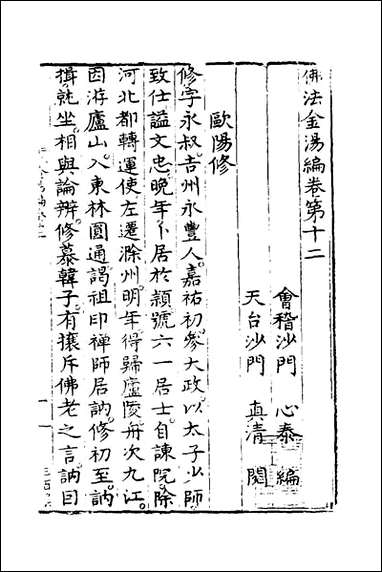 佛法金湯編卷第十二
會稽沙門　心泰　編
天台沙門　真清　閱
歐陽修
修字永叔。吉州永豐人。嘉祐初。參大政。以太子少師
致仕。謚文忠。晚年卜居於潁。號六一居士。自諫院除
河北都轉運使。左遷滁州。明年得歸廬陵。舟次九江。
因游廬山。入東林圓通。謁祖印禪師居訥。修初至。訥
揖就坐。相與論辨。修慕韓子。有攘斥佛老之言。訥曰